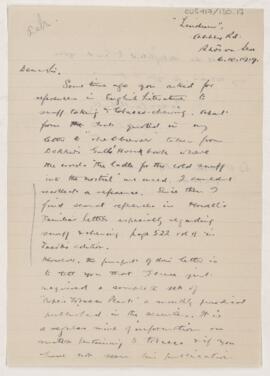 "Lindum",
Abbey Rd.
Rhos on Sea
6.10.1919.
Dear Sir,
Some time ago you asked for
references in English Literature to
snuff taking & tobacco-chewing. Apart
from the text quoted in my
letter to "The Observer" taken from
Dekker's Gull's Hornbook where
the words "the ladle for the cold snuff
into the nostril" are used, I couldn't
recollect a reference. Since then I
find several references in Howell's
Familiar Letters especially regarding
snuff & chewing page 522 vol.
Jacobs edition.
However, the purport of this letter is
to tell you that I have just
acquired a complete set of
"Cope's Tobacco Plant" a monthly periodical
published in the seventies. It is
a regular mine of information on
matters pertaining to tobacco & if you
have not seen this publication